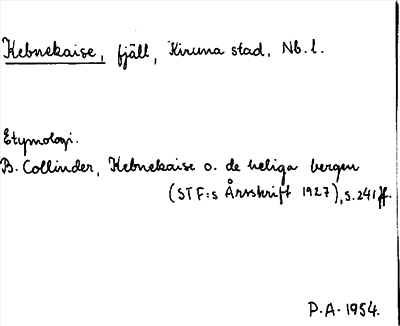 Kebnekaise, fjäll, Kiruna stad, Nb. l.
Etymologi.
B. Collinder, Kebnekaise o. de heliga bergen
(STF:s Årsskrift 1927), s. 241 ff.
P.A. 1954.